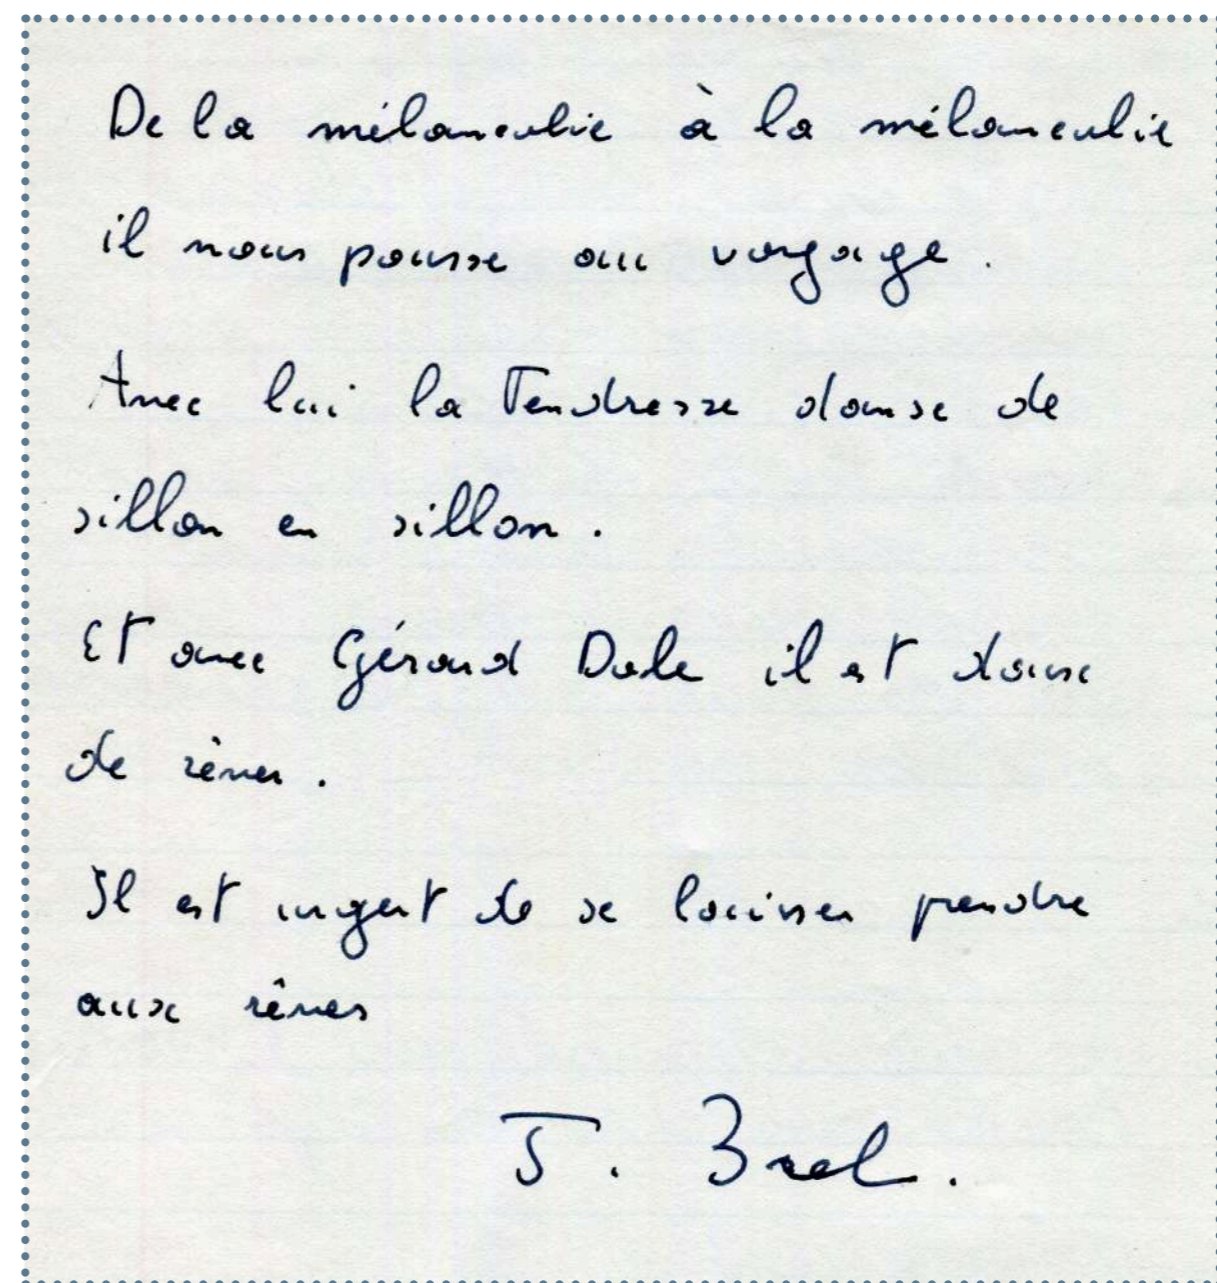 De la mélancolie à la mélancolie
il nous pousse au voyage.
Avec lui la Tendresse danse de
sillon en sillon.
Et avec Gérard Dole il est doux
de rêver.
Il est urgent de se laisser prendre
aux rêves
J. Brel.